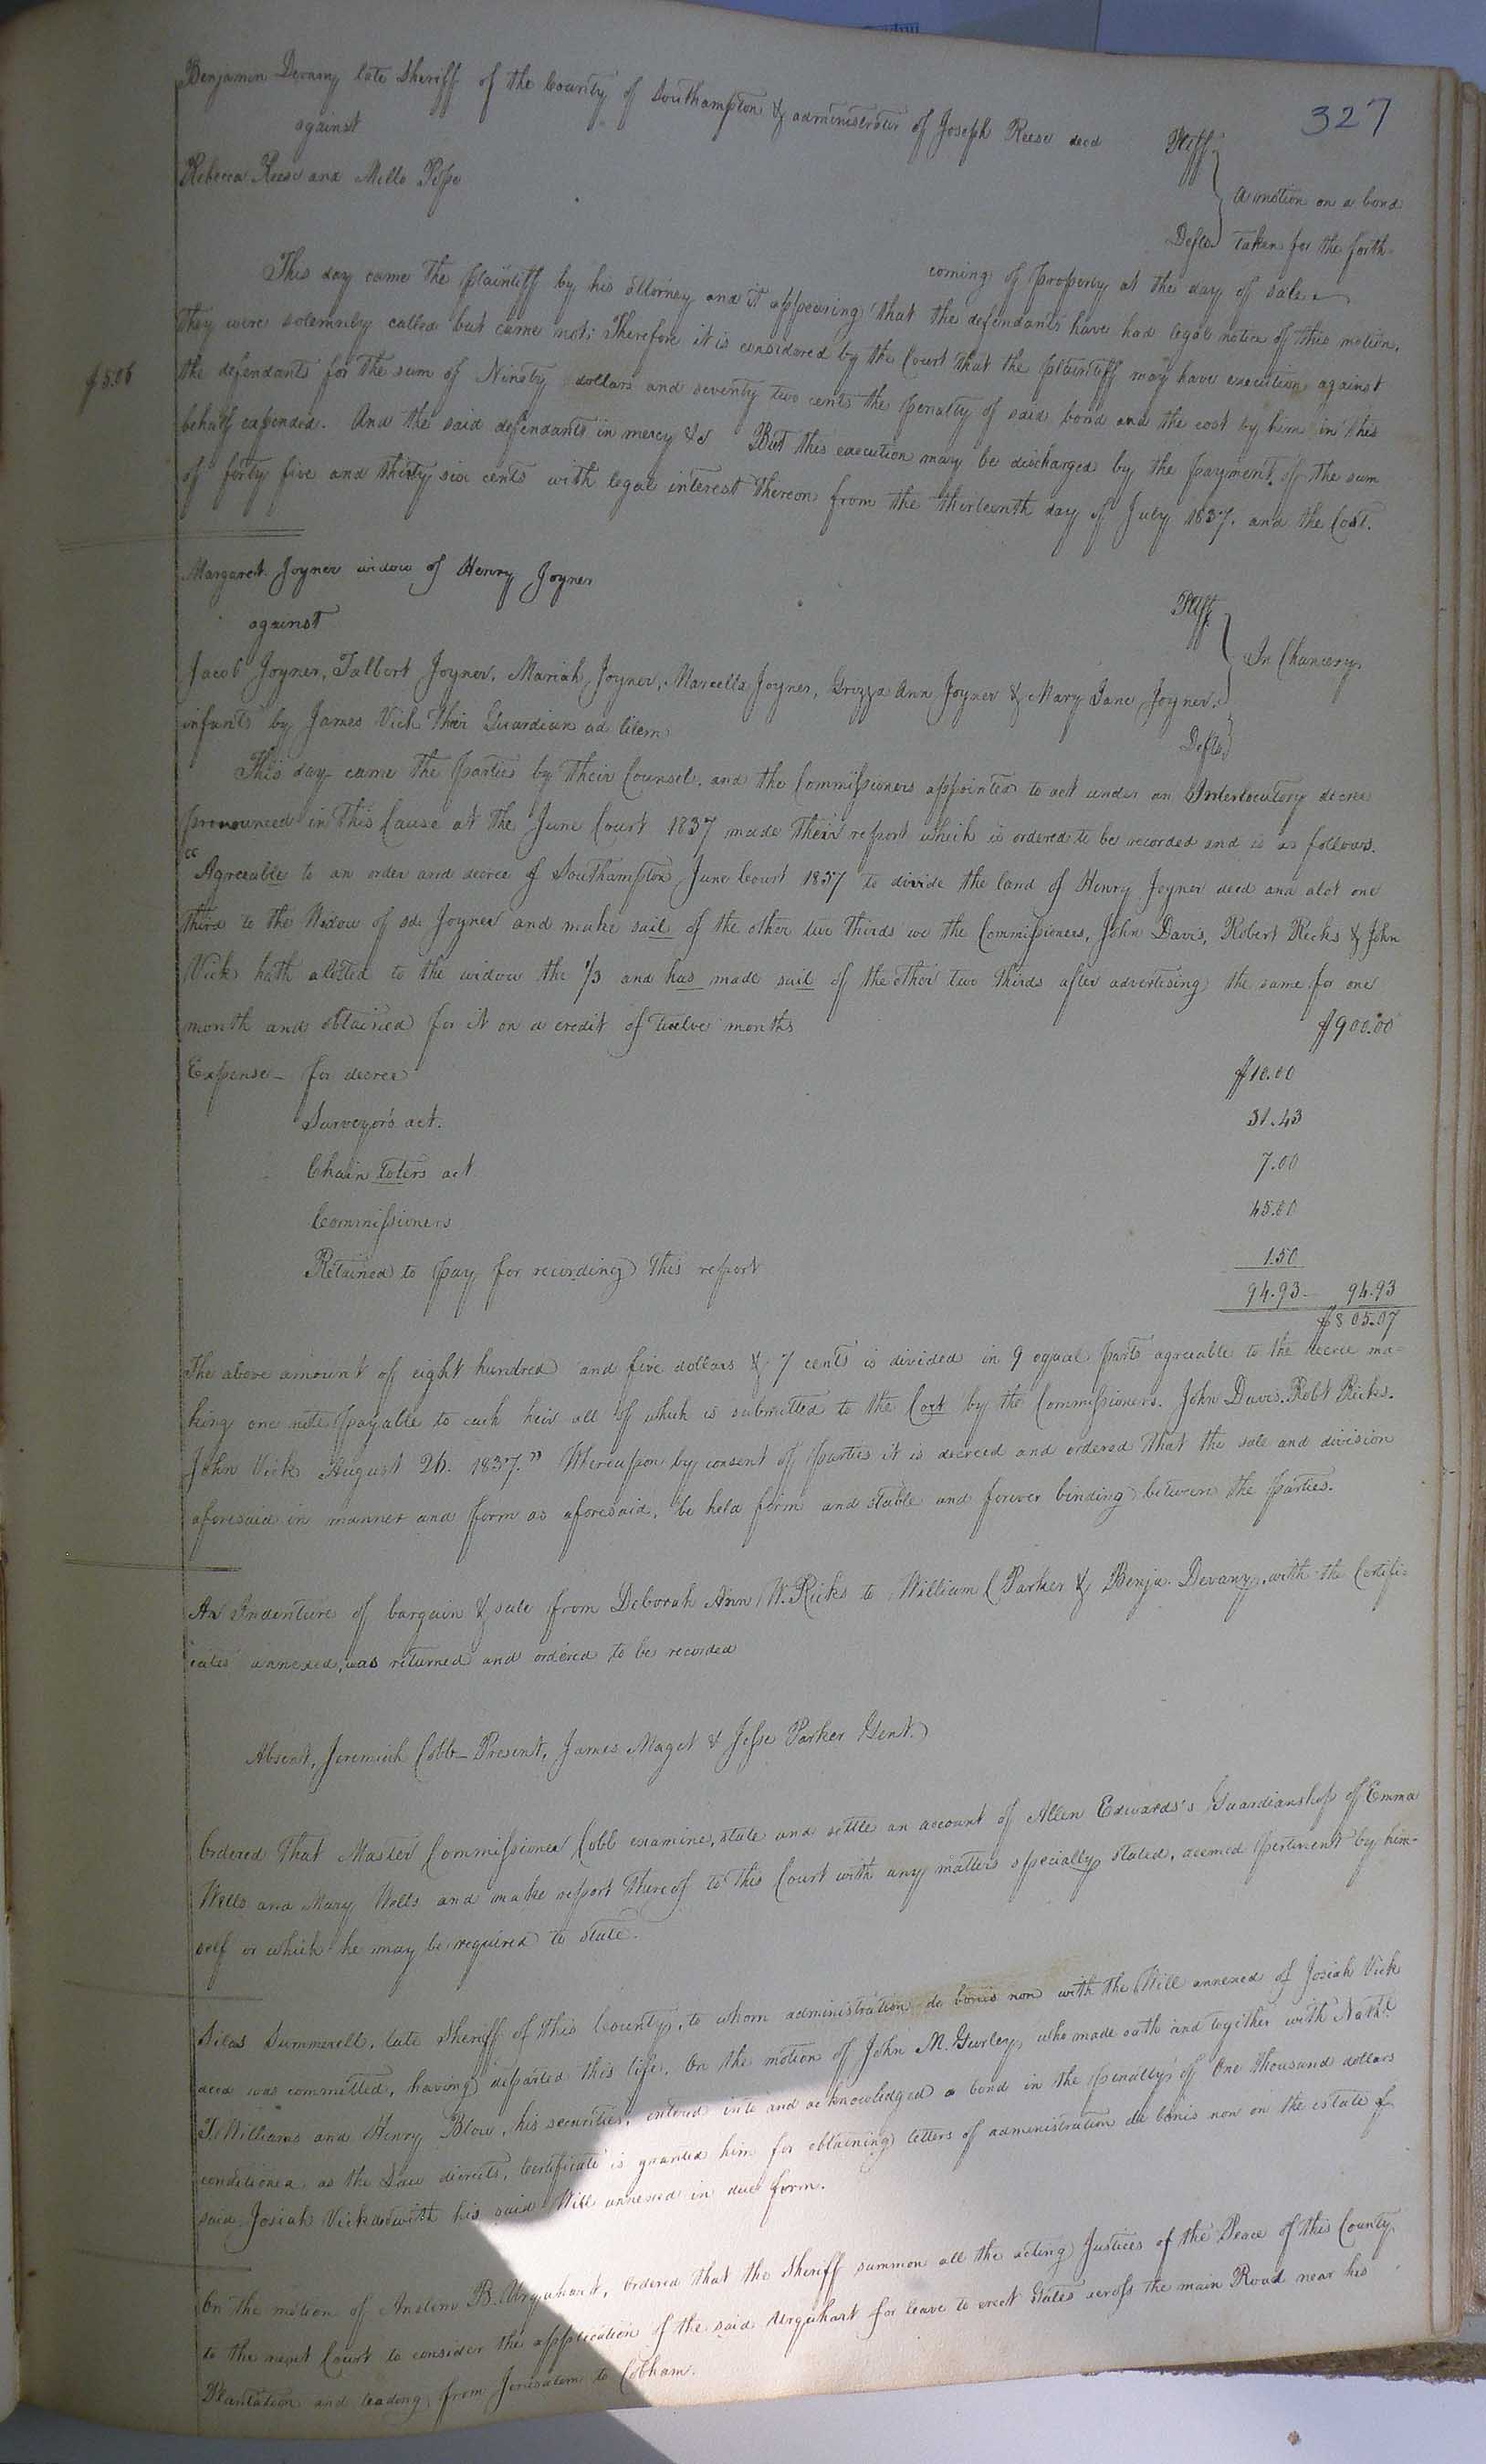 327
Benjamin Devany late Sheriff of the County of Southampton & administrator of Joseph Reese decd Pltff
against
Rebecca Reese and Mills Pope Defts
A motion on a bond
taken for the forth-
coming of property at the day of sale.
This day came the plaintiff by his attorney and it appearing that the defendants have had legal notice of this motion,
they were solemnly called but came not; Therefore it is considered by the Court that the plaintiff may have execution against
$5.06
the defendants for the sum of Ninety dollars and seventy two cents the penalty of said bond and the cost by him in this
behalf expended. And the said defendants in mercy &c But this execution may be discharged by the payment of the sum
of forty five and thirty six cents with legal interest thereon from the thirteenth day of July 1837. and the Cost.
Margaret Joyner widow of Henry Joyner Pltff.
against
In Chancery.
Jacob Joyner, Talbert Joyner, Mariah Joyner, Marcella Joyner, Grizza Ann Joyner & Mary Jane Joyner.
infants by James Vick their Guardian ad litem Defts.
This day came the parties by their Counsel. and the Commissioners appointed to act under an Interlocutory decree
pronounced in this Cause at the June Court 1837 made their report which is ordered to be recorded and is as follows.
"Agreeable to an order and decree of Southampton June Court 1837 to divide the land of Henry Joyner decd and alot one
third to the Widow of sd. Joyner and make sail of the other two thirds we the Commissioners, John Davis, Robert Ricks & John
Vick hath aloted to the widow the 1/3 and has made sail of the other two thirds after advertising the same for one
month and obtained for it on a credit of twelve months $900.00
Expense - for decree $10.00
Surveyor's act. 31.43
Chain toters act 7.00
Commissioners 45.00
Retained to pay for recording this report 1.50
94.93 - 94.93
$805.07
The above amount of eight hundred and five dollars & 7 cents is divided in 9 equal parts agreeable to the decree ma-
king one note payable to each heir all of which is submitted to the Cort by the Commissioners. John Davis. Robt Ricks.
John Vick August 26. 1837." Whereupon by consent of parties it is decreed and ordered that the sale and division
aforesaid in manner and form as aforesaid, be held firm and stable and forever binding between the parties.
An Indenture of bargain & sale from Deborah Ann W. Ricks to William C Parker & Benja. Devany, with the Certifi-
cates annexed, was returned and ordered to be recorded
Absent, Jeremiah Cobb - Present, James Maget & Jesse Parker Gent.
Ordered that Master Commissioner Cobb examine, state and settle an account of Allen Edwards's Guardianship of Emma
Wells and Mary Wells and make report thereof to this Court with any matters specially stated, deemed pertinent by him-
self or which he may be required to state.
Silas Summerell, late Sheriff of this County, to whom administration de bonis non with the Will annexed of Josiah Vick
decd was committed, having departed this life. On the motion of John M. Gurley, who made oath and together with Nathl.
T. Williams and Henry Blow, his securities, entered into and acknowledged a bond in the penalty of One thousand dollars
conditioned as the Law directs, Certificate is granted him for obtaining letters of administration de bonis non on the estate of
said Josiah Vick decd with his said Will annexed in due form.
On the motion of Anselm B. Urquhart, Ordered that the Sheriff summon all the acting Justices of the Peace of this County
to the next Court to consider the application of the said Urquhart for leave to erect Gates across the main Road near his
Plantation and leading from Jerusalem to Cobham.